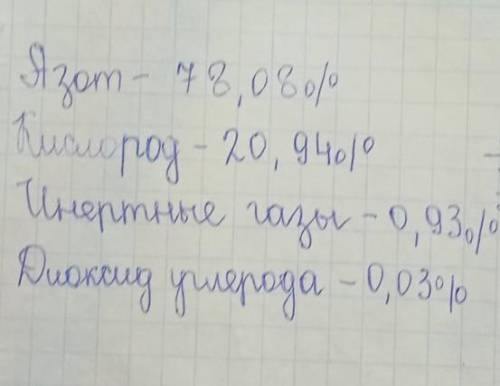 Язот - 78,08%
Кислород - 20,94%
Инертные газы - 0,93%
Диоксид углерода - 0,03%